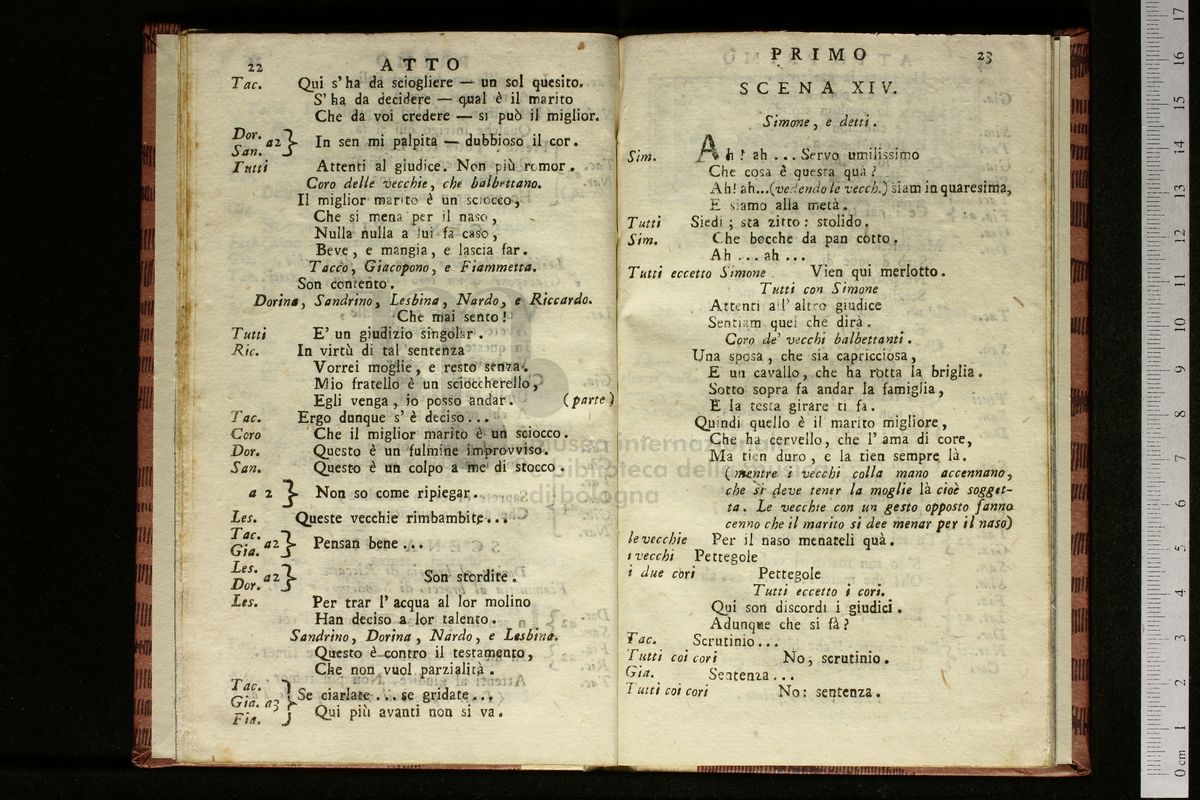 22 ATTO
Tac. Qui s'ha da sciogliere — un sol quesito.
S'ha da decidere — qual è il marito
Che da voi credere — si può il miglior.
Dor. San. a2 In sen mi palpita — dubbioso il cor.
Tutti Attenti al giudice. Non più romor.
Coro delle vecchie, che balbettano.
Il miglior marito è un sciocco,
Che si mena per il naso,
Nulla nulla a lui fa caso,
Beve, e mangia, e lascia far.
Tacco, Giacopono, e Fiammetta.
Son contento.
Dorina, Sandrino, Lesbina, Nardo, e Riccardo.
Che mai sento!
Tutti E' un giudizio singolar.
Ric. In virtù di tal sentenza
Vorrei moglie, e resto senza.
Mio fratello è un scioccherello,
Egli venga, io posso andar. (parte)
Tac. Ergo dunque s'è deciso...
Coro Che il miglior marito è un sciocco.
Dor. Questo è un fulmine improvviso.
San. Questo è un colpo a me di stocco.
a 2 Non so come ripiegar.
Les. Queste vecchie rimbambite...
Tac. Gia. a2 Pensan bene...
Les. Dor. a2 Son stordite.
Les. Per trar l'acqua al lor molino
Han deciso a lor talento.
Sandrino, Dorina, Nardo, e Lesbina.
Questo è contro il testamento,
Che non vuol parzialità.
Tac. Gia. Fia. a3 Se ciarlate... se gridate...
Qui più avanti non si va.
PRIMO 23
SCENA XIV.
Simone, e detti.
Sim. Ah! ah... Servo umilissimo
Che cosa è questa quà?
Ah! ah...(vedendo le vecch.) siam in quaresima,
E siamo alla metà.
Tutti Siedi; sta zitto: stolido.
Sim. Che bocche da pan cotto.
Ah... ah...
Tutti eccetto Simone Vien qui merlotto.
Tutti con Simone
Attenti all'altro giudice
Sentiam quel che dirà.
Coro de' vecchi balbettanti.
Una sposa, che sia capricciosa,
E un cavallo, che ha rotta la briglia.
Sotto sopra fa andar la famiglia,
E la testa girare ti fa.
Quindi quello è il marito migliore,
Che ha cervello, che l'ama di core,
Ma tien duro, e la tien sempre là.
(mentre i vecchi colla mano accennano,
che si deve tener la moglie là cioè sogget-
ta. Le vecchie con un gesto opposto fanno
cenno che il marito si dee menar per il naso)
le vecchie Per il naso menateli quà.
i vecchi Pettegole
i due cori Pettegole
Tutti eccetto i cori.
Qui son discordi i giudici.
Adunque che si fà?
Tac. Scrutinio...
Tutti coi cori No, scrutinio.
Gia. Sentenza...
Tutti coi cori No: sentenza.
museo internazionale
biblioteca della musica
di bologna
0 cm 1 2 3 4 5 6 7 8 9 10 11 12 13 14 15 16 17